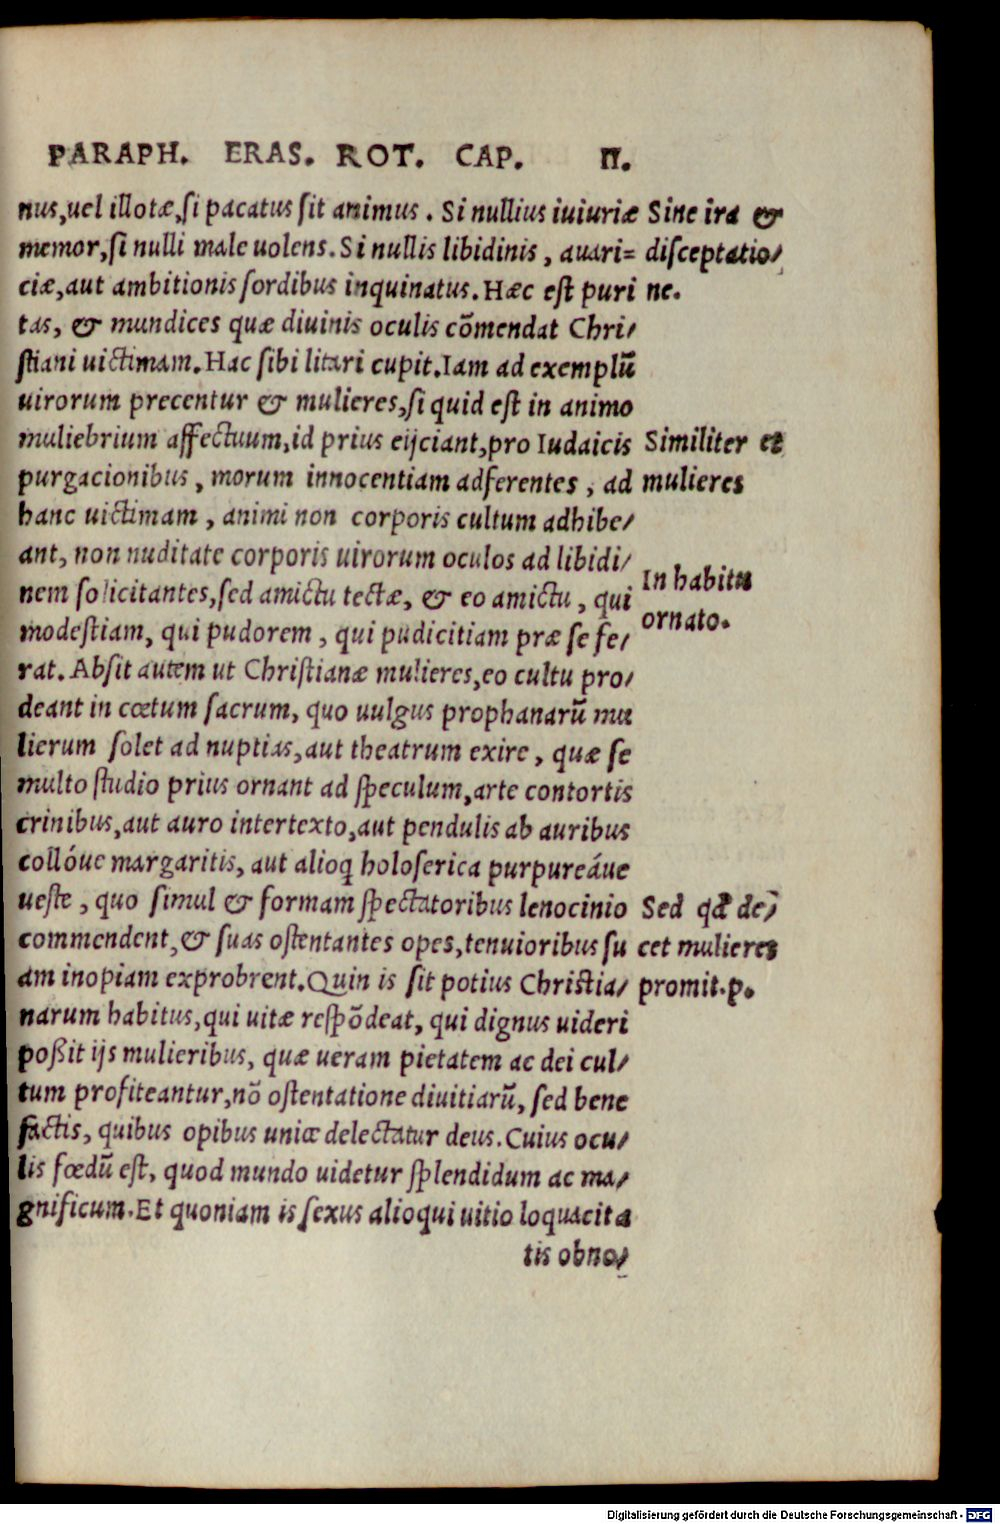 PARAPH. ERAS. ROT. CAP. II.
nus,uel illotæ,ſi pacatus ſit animus. Si nullius iuiuriæ
memor,ſi nulli male uolens. Si nullis libidinis, auari=
ciæ,aut ambitionis ſordibus inquinatus. Hæc eſt puri
tas, & mundices quæ diuinis oculis cõmendat Chri/
ſtiani uictimam. Hac ſibi litari cupit. Iam ad exemplũ
uirorum precentur & mulieres,ſi quid eſt in animo
muliebrium affectuum,id prius eijciant,pro Iudaicis
purgacionibus, morum innocentiam adferentes, ad
hanc uictimam, animi non corporis cultum adhibe/
ant, non nuditate corporis uirorum oculos ad libidi/
nem ſolicitantes,ſed amictu tectæ, & eo amictu, qui
modeſtiam, qui pudorem, qui pudicitiam præ ſe fe/
rat. Abſit autem ut Chriſtianæ mulieres,eo cultu pro/
deant in cœtum ſacrum, quo uulgus prophanarũ mu
lierum ſolet ad nuptias,aut theatrum exire, quæ ſe
multo ſtudio prius ornant ad ſpeculum,arte contortis
crinibus,aut auro intertexto,aut pendulis ab auribus
collóue margaritis, aut alioq holoſerica purpureáue
ueſte, quo ſimul & formam ſpectatoribus lenocinio
commendent,& ſuas oſtentantes opes,tenuioribus ſu
am inopiam exprobrent. Quin is ſit potius Chriſtia/
narum habitus,qui uitæ reſpõdeat, qui dignus uideri
poßit ijs mulieribus, quæ ueram pietatem ac dei cul/
tum profiteantur,nõ oſtentatione diuitiarũ, ſed bene
factis, quibus opibus uniæ delectatur deus. Cuius ocu/
lis fœdũ eſt, quod mundo uidetur ſplendidum ac ma/
gnificum. Et quoniam is ſexus alioqui uitio loquacita
tis obno/
Sine ira &
diſceptatio/
ne.
Similiter et
mulieres
In habitu
ornato.
Sed qđ de/
cet mulieres
promit.p.
Digitalisierung gefördert durch die Deutsche Forschungsgemeinschaft - DFG